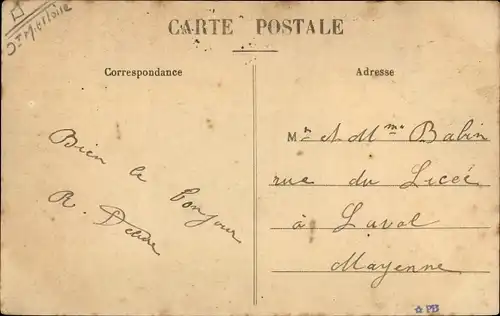 CARTE POSTALE
Correspondance
Adresse
Bien le Bonjour
R.
Mr et Mme Babin
rue du Liceé
à Laval
Mayenne
☆ PB